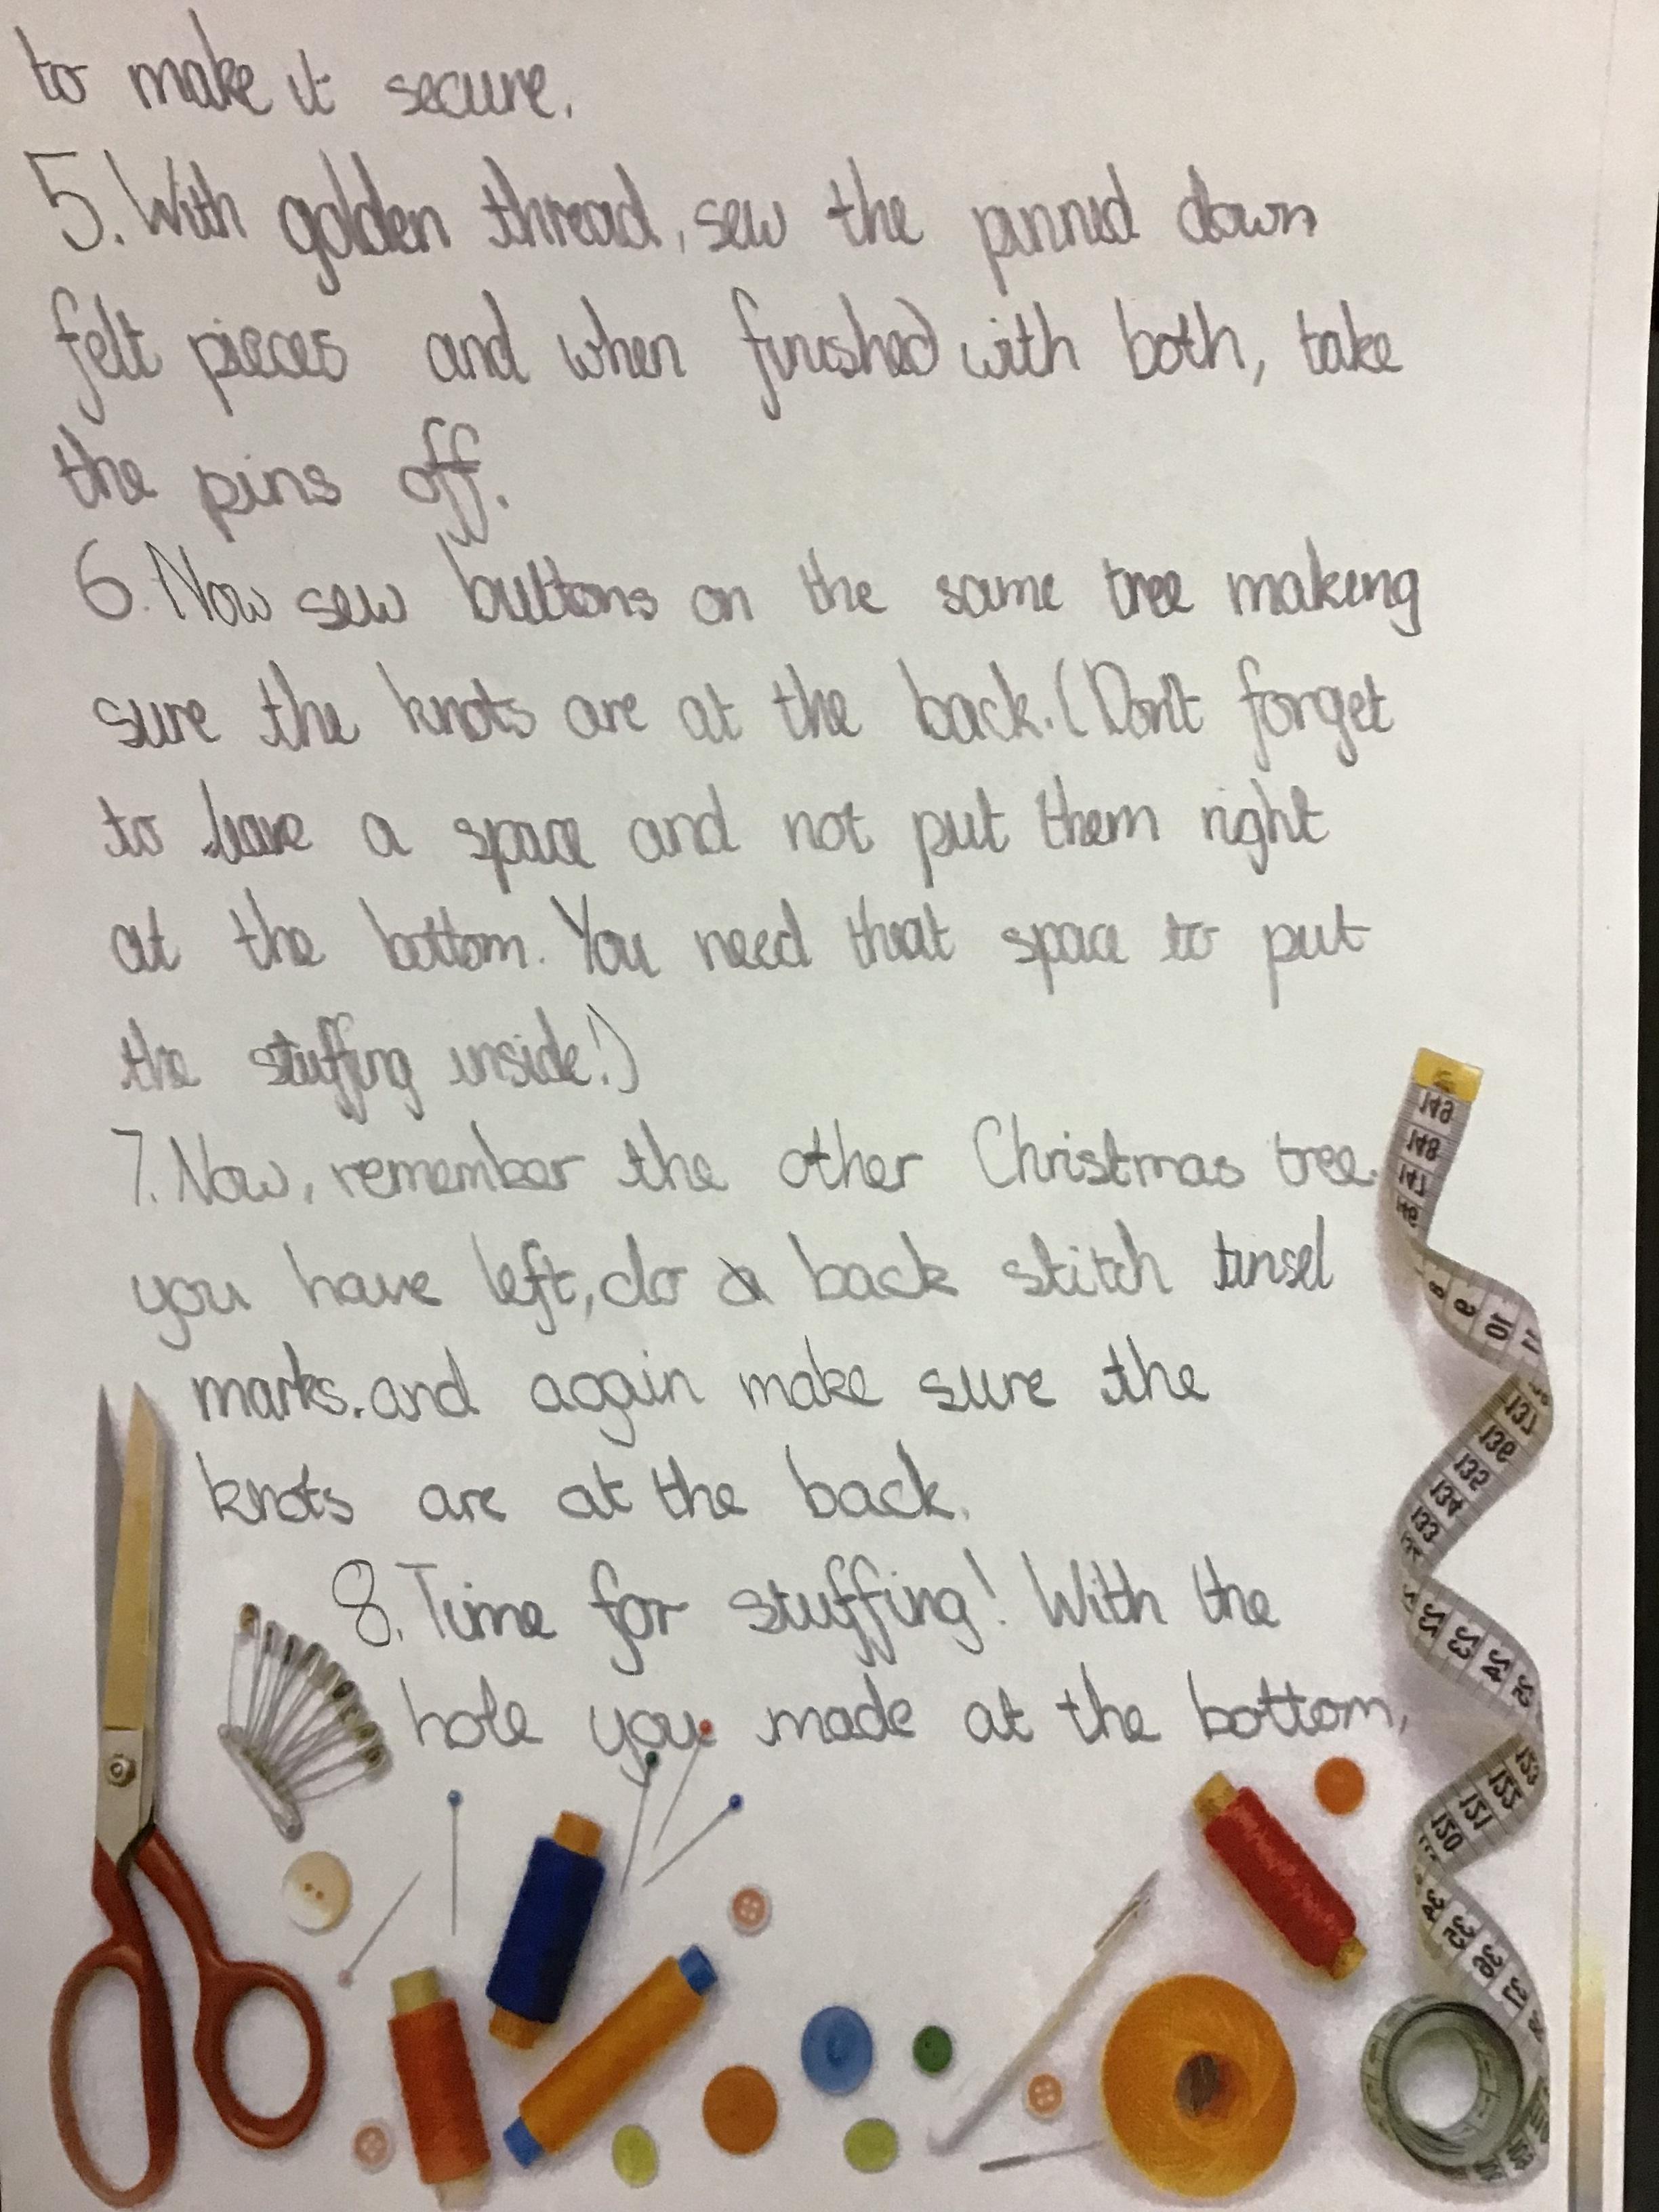 to make it secure.
5. With golden thread, sew the pinned down
felt pieces and when finished with both, take
the pins off.
6. Now sew buttons on the same tree making
sure the knots are at the back. (Don't forget
to leave a space and not put them right
at the bottom. You need that space to put
the stuffing inside!)
7. Now, remember the other Christmas tree
you have left, do a back stitch tinsel
marks. and again make sure the
knots are at the back.
8. Time for stuffing! With the
hole you made at the bottom,
149
148
147
146
8
9
10
11
137
136
135
134
133
22
23
24
25
123
122
121
120
34
35
36
37